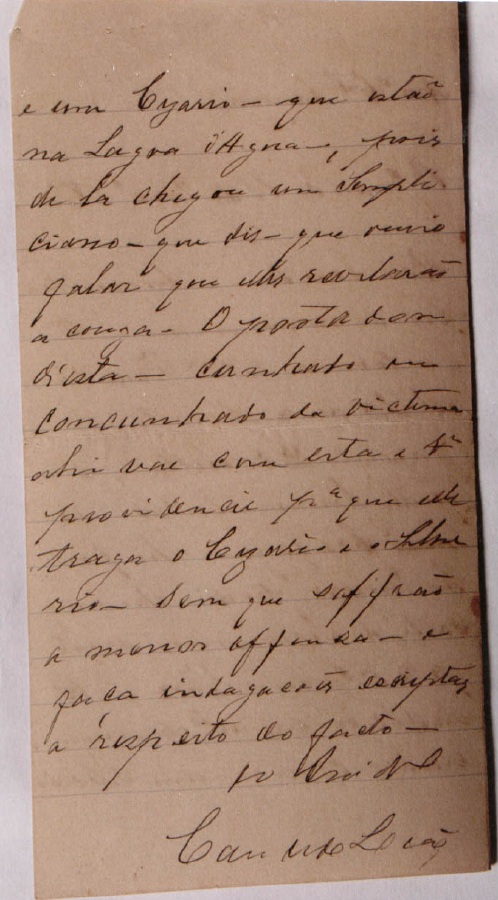 e um Cyario - que estão
na Lagoa d'Agua -, pois
de la chegou um Simpli
ciano - que dis - que ouvio
falar que elles revelarão
a couza - O portador
d'esta - cunhado ou
concunhado da victima
ahi vae com esta e
providencie p.ª que elle
traga o Cyario e o
rio - sem que soffrão
a menor offensa - e
faça indagações escriptas
a respeito do facto -
Candido Leão